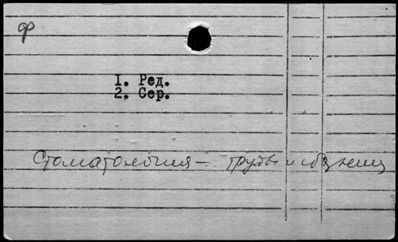 ф
1. Ред.
2. Сер.
Стоматология — труды и сб. науч